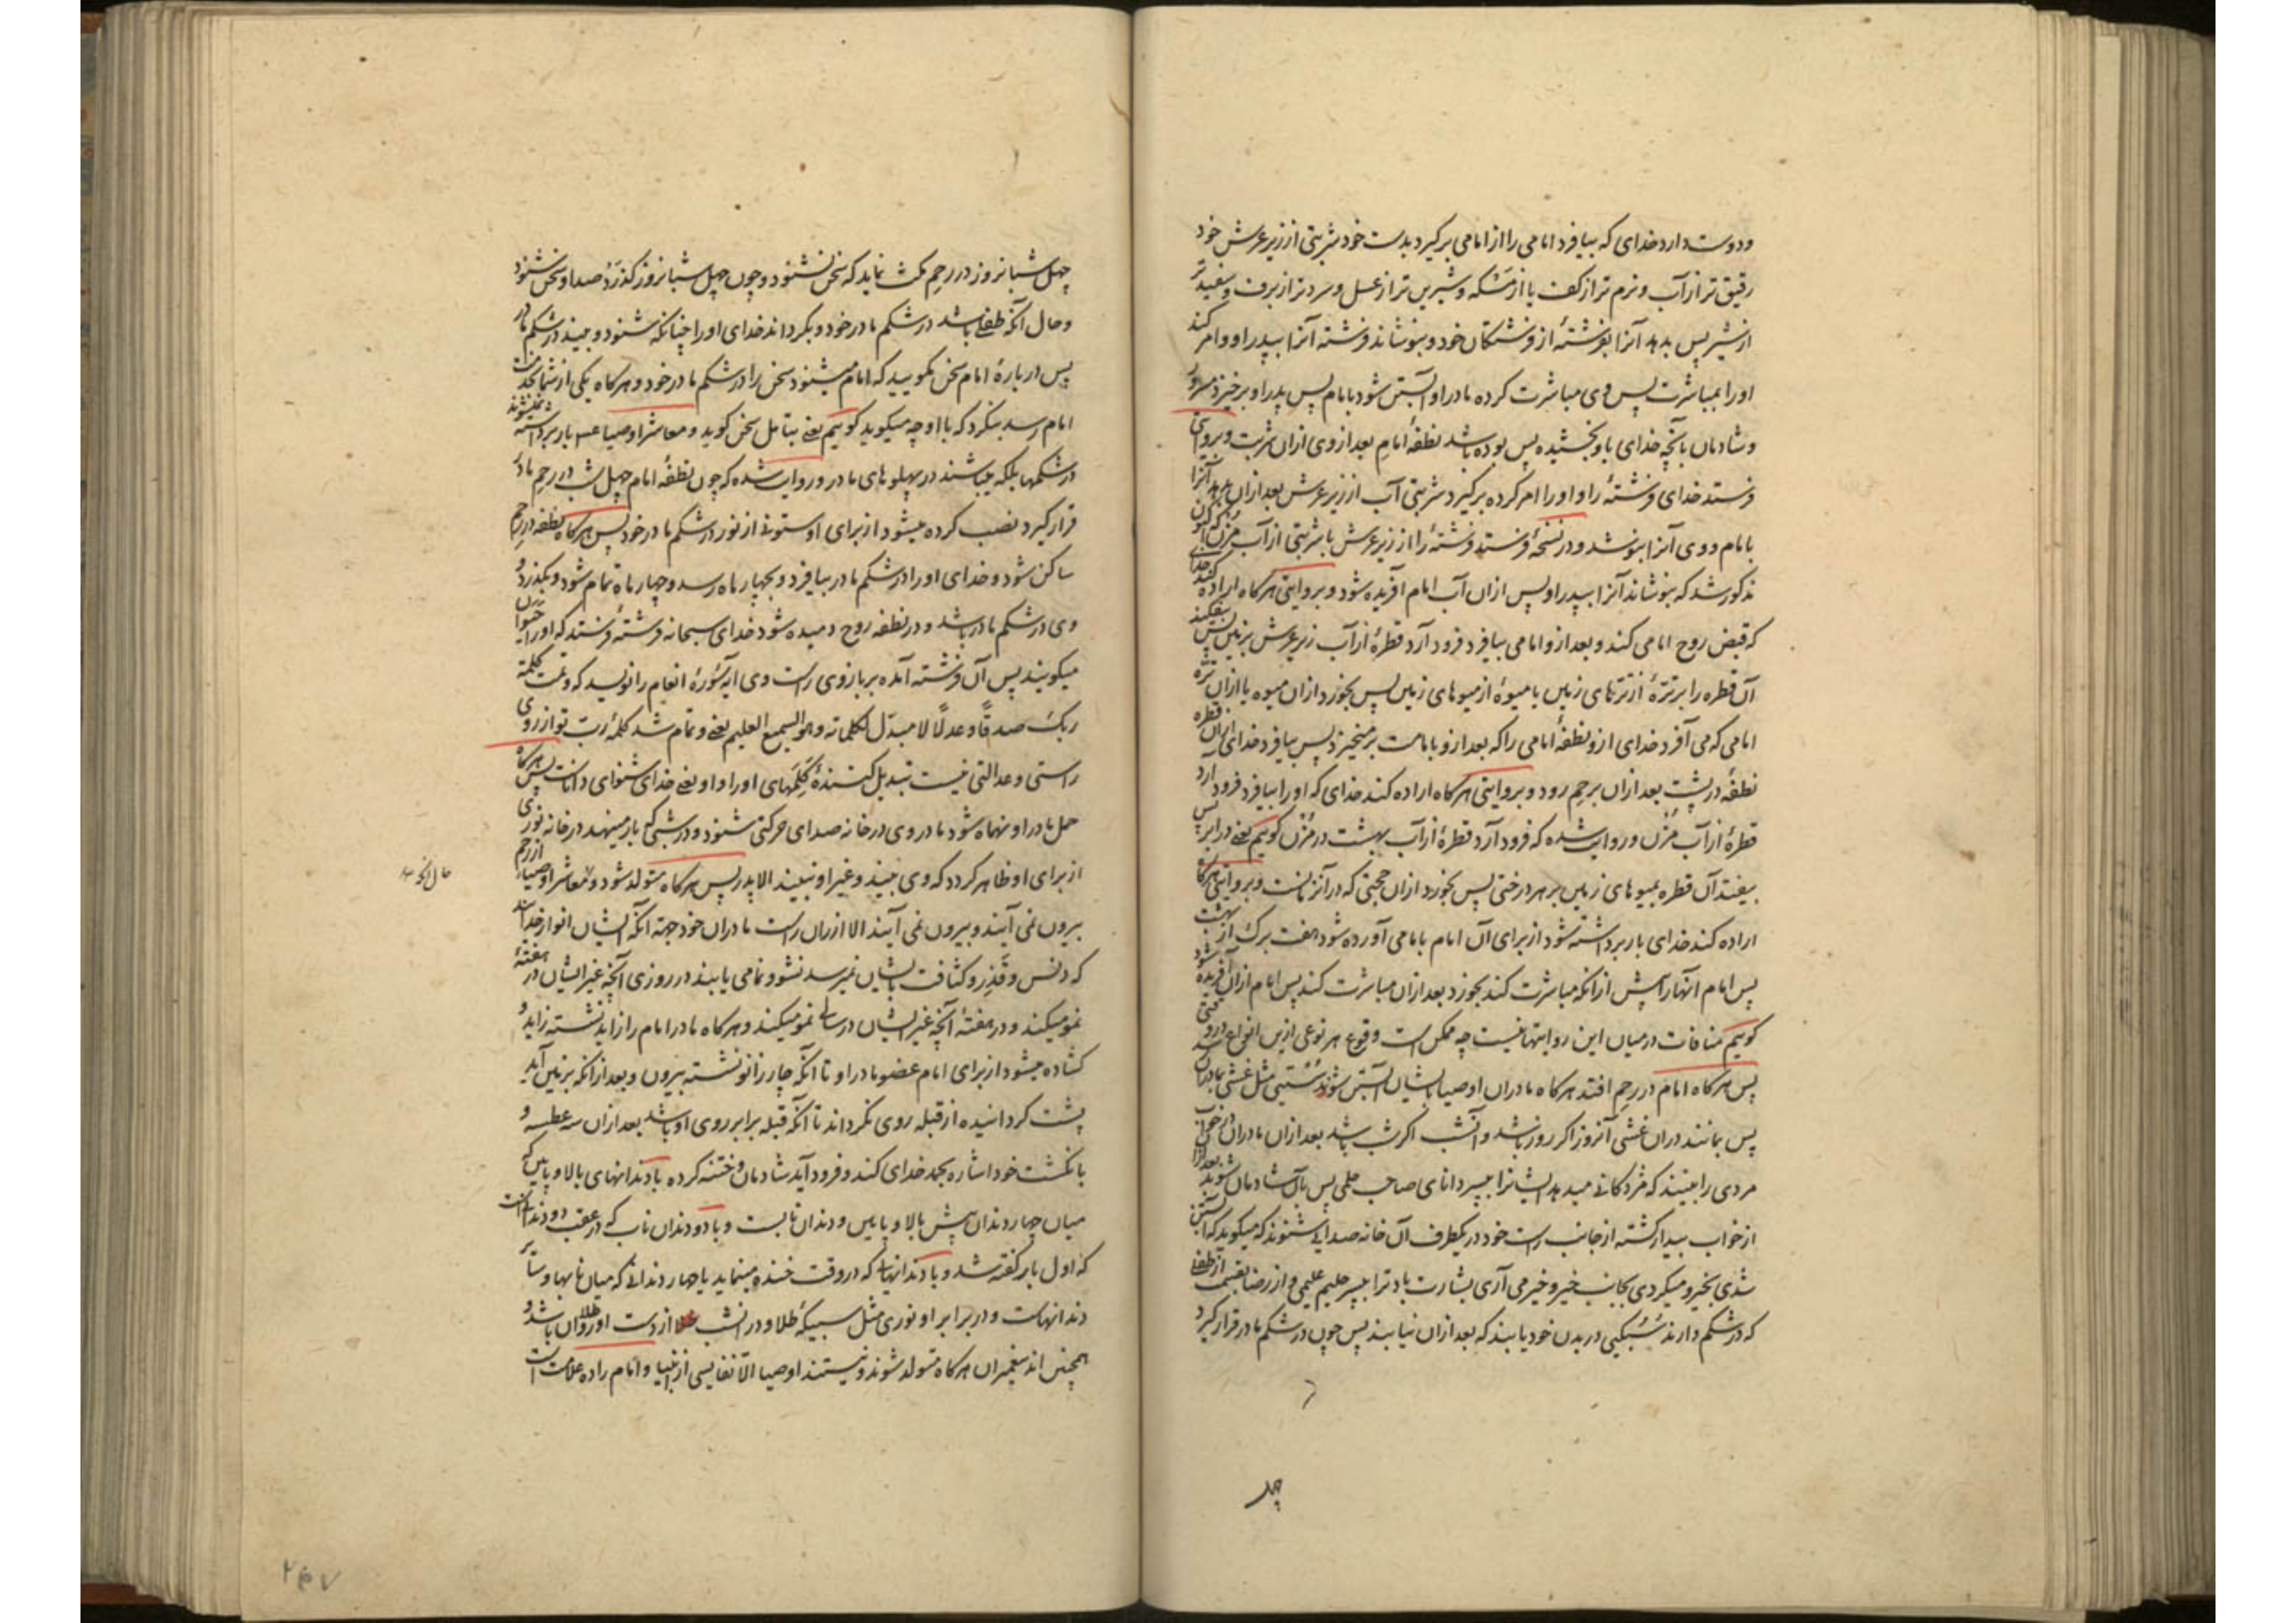 ودوست دارد خدای که بیافرد امامی را از امامی برگیرد بدست خود شربتی از زیر عرش خود
رقیق تر از آب و نرم تر از کف یا از مَسکه و شیرین تر از عسل و سرد تر از برف و سفید تر
از شیر پس بدهد آنرا بفرشتهٔ از فرشتگان خود و بنوشاند فرشته آنرا بپدر او و امر کند
او را بمباشرت پس وی مباشرت کرده مادر او آبستن شود بامام پس پدر او برخیزد مسرور
و شادمان بآنچه خدای باو بخشیده پس بوده باشد نطفهٔ امامِ بعد از وی ازان شربت و بروایتی
فرستد خدای فرشتهٔ را و او را امر کرده برگیرد شربتی آب از زیر عرش بعد ازان بدهد آنرا
بامام و وی آنرا بنوشد و در نسخهٔ فرستد فرشتهٔ را از زیر عرش با شربتی از آب مُزن که
مذکور شد که بنوشاند آنرا بپدر او پس ازان آب امام آفریده شود و بروایتی هرگاه اراده کند خدای
که قبض روح امامی کند و بعد ازو امامی بیافرد فرود آرد قطرهٔ از آب زیر عرش بزمین پس بیفکند
آن قطره را بر ترّهٔ از ترّهای زمین یا میوهٔ از میوهای زمین پس بخورد ازان میوه یا ازان ترّه
امامی که می آفرد خدای ازو نطفهٔ امامی را که بعد ازو بامامت برمیخیزد پس بیافرد خدای ازان قطره
نطفهٔ در پشت بعد ازان برحِم رود و بروایتی هرگاه اراده کند خدای که او را بیافرد فرود آرد
قطرهٔ از آب مُزن و روایت شده که فرود آرد قطرهٔ از آب بهشت در مُزن گوییم یعنی در ابر پس
بیفتد آن قطره بمیوهای زمین بر هر درختی پس بخورد ازان حجتی که در آنزمانست و بروایتی هرگاه
اراده کند خدای بار برداشته شود از برای آن امام بامامی آورده شود هفت برگ از بهشت
پس امام آنها را پیش ازانکه مباشرت کند بخورد بعد ازان مباشرت کند پس امام ازان آفریده شود
گوییم منافات در میان این روایتها نیست چه ممکن است وقوع هر نوعی ازین انواع در وقتی
پس هرگاه امام در رحِم افتد هرگاه مادران اوصیا بایشان آبستن شوند سُستیی مثل غشی بمادران رسد
پس بمانند دران غشی آنروز اگر روز باشد و آنشب اگر شب باشد بعد ازان مادران در خواب
مردی را بینند که مژدگانی میدهد ایشانرا بپسر دانای صاحب حلمی پس بآن شادمان شوند بعد ازان
از خواب بیدار گشته از جانب راست خود در یکطرف آن خانه صدایی شنوند که میگوید که آبستن
شدی بخیر و میگردی بجانب خیر و خیر می آری بشارت باد ترا بپسر حلیم علیمی و از رضا بقسمت از طفلی
که در شکم دارند سُبُکیی در بدن خود یابند که بعد ازان نیابند پس چون در شکم مادر قرار گیرد
چهل
چهل شبانروز در رحِم مکث نماید که سخن نشنود و چون چهل شبانروز گذرد صدا و سخن شنود
و حال آنکه طفلی باشد در شکم مادر خود و بگرداند خدای او را چنانکه شنود و بیند در شکم مادر
پس دربارهٔ امام سخن مگویید که امام میشنود سخن را در شکم مادر خود و هرگاه یکی از شما بخدمت
امام رسد بنگرد که با او چه میگوید گوییم یعنی بتأمل سخن گوید و معاشر اوصیا ع بار برداشته نمیشوند
در شکمها بلکه میباشند در پهلوهای مادر و روایت شده که چون نطفهٔ امام چهل شب در رحِم مادر
قرار گیرد نصب کرده میشود از برای او ستونی از نور در شکم مادر خود پس هرگاه نطفه در رحِم
ساکن شود و خدای او را در شکم مادر بیافرد و بچهار ماه رسد و چهار ماه تمام شود و بگذرد و
وی در شکم مادر باشد و در نطفه روح دمیده شود خدای سبحانه فرشتهٔ فرستد که او را حَیَوان
میگویند پس آن فرشته آمده بر بازوی راست وی ایه سُورهٔ انعام را نویسد که و تمت کلمة
ربک صدقًا و عدلًا لا مبدّل لکلماته و هو السمیع العلیم یعنی و تمام شد کلمهٔ ربّ تو از روی
راستی و عدالتی نیست تبدیل کنندهٔ کَلِمَهای او را و او یعنی خدای شنوای داناست پس هرگاه
حمل مادر او نهماه شود مادر وی در خانه صدای حرکتی شنود و در شبی که بار مینهد در خانه نوری
از برای او ظاهر گردد که وی بیند و غیر او نبیند الا پدر پس هرگاه متولد شود و معاشر اوصیا از رحِم
بیرون نمی آیند و بیرون نمی آیند الا از ران راست مادران خود جهة آنکه ایشان انوار خدایند
که دنس و قَذِر و کثافت بایشان نمیرسد نشو و نما می یابند در روزی آنچه غیر ایشان در هفتهٔ
نمو میکند و در هفتهٔ آنچه غیر ایشان در سالی نمو میکند و هرگاه مادر امام را زاید نشسته زاید و
گشاده میشود از برای امام عضو مادر او تا آنکه چار زانو نشسته بیرون و بعد ازانکه بزمین آید
پشت گردانیده از قبله روی نگرداند تا آنکه قبله برابر روی او باشد بعد ازان سه عطسه و
بانگشت خود اشاره بحمد خدای کند و فرود آید شادمان و ختنه کرده با دندانهای بالا و پایین که
میان چهار دندان پیش بالا و پایین و دندان نابست و با دو دندان ناب که در عقب دو دندانست
که اول بار گفته شد و با دندانهایی که در وقت خنده مینماید یا چهار دندانی که میان نابها و سایر
دندانهاست و در برابر او نوری مثل سبیکهٔ طلا و در انشب از دست او طلا روان باشد و
همچنین اند پیغمبران هرگاه متولد شوند و نیستند اوصیا الّا نفایسی از انبیا و امام را ده علامت است
۲۴۷